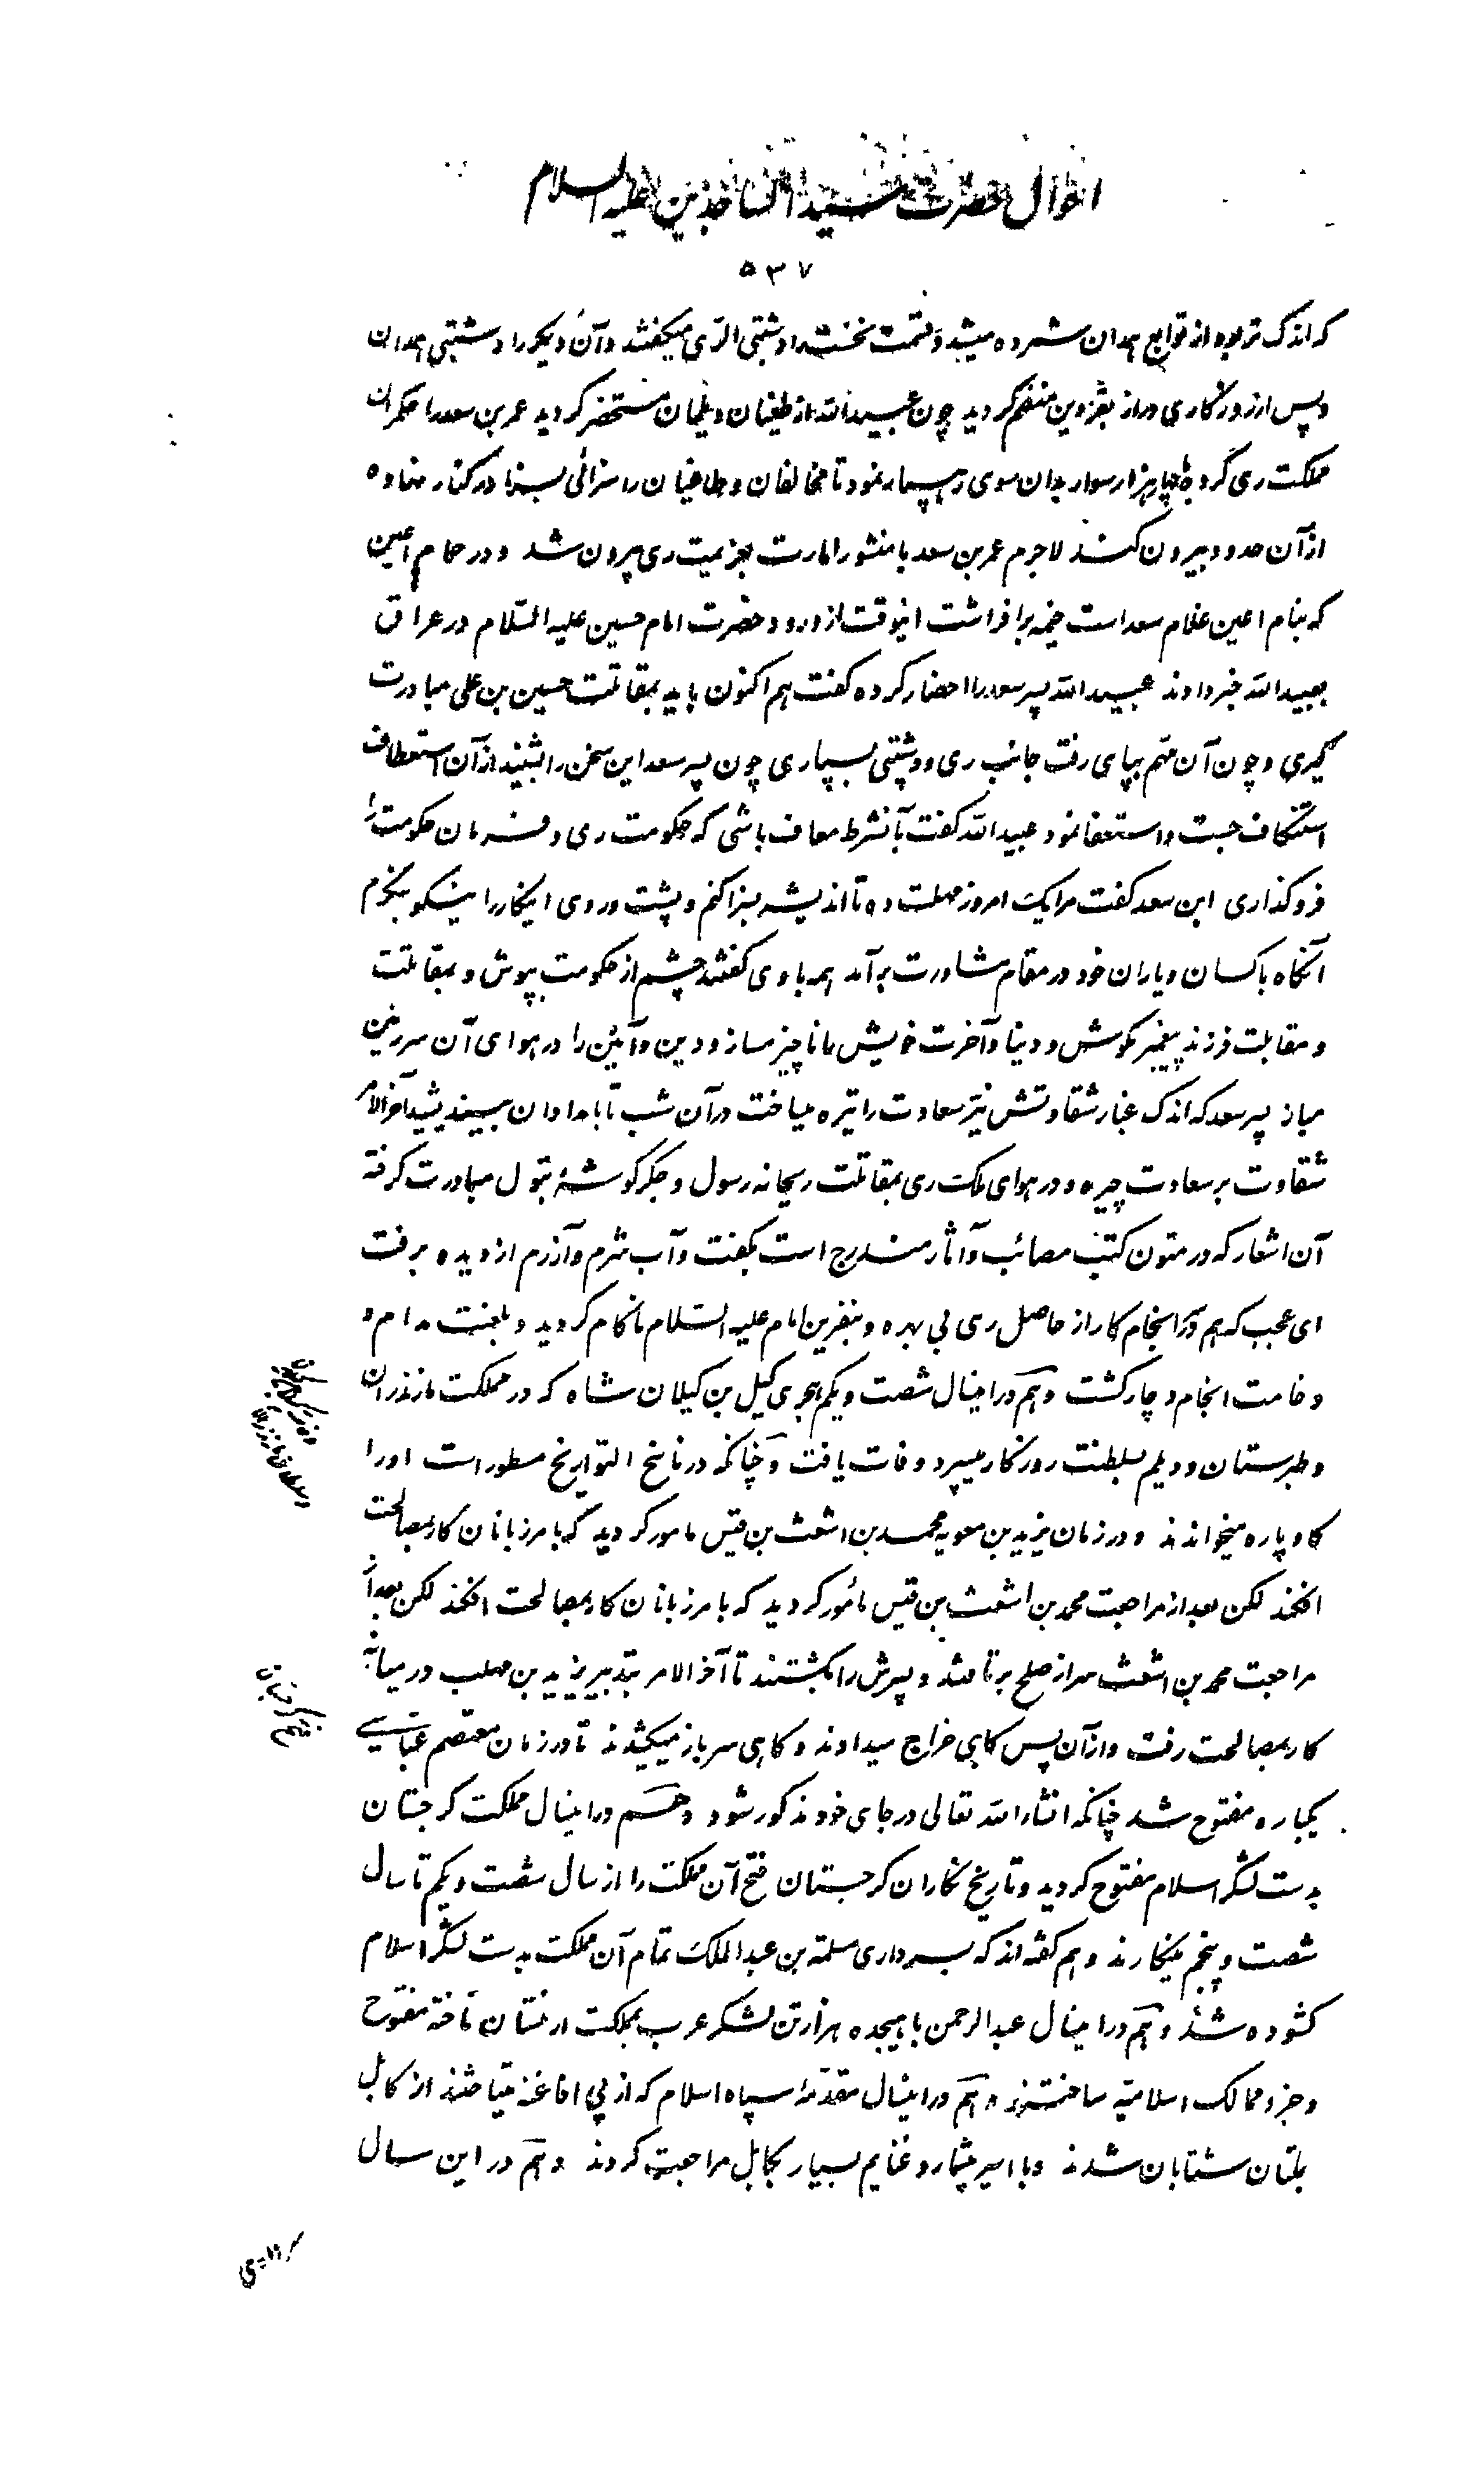 احوال حضرت سید الساجدین علیه السلام
۵۳۷
که اندک تر بود از توابع همدان شمرده میشد و قسمت نخست را دشتبی الرّی میگفتند و آن دیگر را دشتبی همدان
و پس از روزگاری دراز بقزوین منضم گردید چون عبیدالله از طغیان دیلمان مستحضر گردید عمر بن سعد را حکمران
مملکت ری کرد با چهار هزار سوار بدان سوی رهسپار نمود تا مخالفان و طاغیان را سزائی بسزا در کنار نهاده
از آن حدود بیرون کنند لاجرم عمر بن سعد با منشور امارت بعزیمت ری بیرون شد و در حمام اعین
که بنام اعین غلام سعد است خیمه برافراشت اینوقت از ورود حضرت امام حسین علیه السّلام در عراق
بعبیدالله خبر دادند عبیدالله پسر سعد را احضار کرده گفت هم اکنون باید بمقاتلت حسین بن علی مبادرت
گیری و چون آن مهم بپای رفت جانب ری و دشتبی بسپاری چون پسر سعد این سخن را بشنید از آن استعطاف
استنکاف جست و استعفا نمود عبیدالله گفت بآنشرط معاف باشی که حکومت ری و فرمان حکومت را
فرو گذاری ابن سعد گفت مرا یک امروز مهلت ده تا اندیشه بسزا کنم و پشت و روی اینکار را نیکو بنگرم
آنگاه با کسان و یاران خود در مقام مشاورت برآمد همه با وی گفتند چشم از حکومت بپوش و بمقاتلت
و مقابلت فرزند پیغمبر مکوش و دنیا و آخرت خویش را ناچیز مساز و دین و آئین را در هوای آن سرزمین
مباز پسر سعد که اندک غبار شقاوتش نیّر سعادت را تیره میاخت در آن شب تا بامدادان بیندیشید آخرالامر
شقاوت بر سعادت چیره و در هوای ملک ری بمقاتلت ریحانه رسول و جگرگوشهٔ بتول مبادرت گرفته
آن اشعار که در متون کتب مصائب و آثار مندرج است بگفت و آب شرم و آزرم از دیده برفت
ای عجب که هم در سرانجام کار از حاصل ری بی بهره و بنفرین امام علیه السّلام ناکام گردید و بلعنت مدام و
وخامت انجام دچار گشت و هم در اینسال شصت و یکم هجری گیل بن گیلان شاه که در مملکت مازندران
و طبرستان و دیلم بسلطنت روزگار میسپرد وفات یافت و چنانکه در ناسخ التواریخ مسطور است او را
گاوپاره میخواندند و در زمان یزید بن معویه محمد بن اشعث بن قیس مامور گردید که با مرزبانان کار بمصالحت
افکند لکن بعد از مراجعت محمد بن اشعث بن قیس مأمور گردید که با مرزبانان کار بمصالحت افکند لکن بعد از
مراجعت محمد بن اشعث سر از صلح برتافتند و پسرش را بکشتند تا آخر الامر بتدبیر یزید بن مهلب در میانه
کار بمصالحت رفت و از آن پس گاهی خراج میدادند و گاهی سر باز میکشیدند تا در زمان معتصم عباسی
یکباره مفتوح شد چنانکه انشاءالله تعالی در جای خود مذکور شود و هم در اینسال مملکت گرجستان
بدست لشکر اسلام مفتوح گردید و تاریخ نگاران گرجستان فتح آن مملکت را از سال شصت و یکم تا سال
شصت و پنجم مینگارند و هم گفته اند که بسرداری مسلمة بن عبدالملک تمام آن مملکت بدست لشکر اسلام
گشوده شد و هم در اینسال عبدالرحمن با هیجده هزار تن لشکر عرب بمملکت ارمنستان تاخته مفتوح
و جزو ممالک اسلامیّه ساختند و هم در اینسال مقدّمهٔ سپاه اسلام که از پی افاغنه میتاختند از کابل
بملتان شتابان شدند و با اسیر بیشمار و غنایم بسیار بکابل مراجعت کردند و هم در این سال